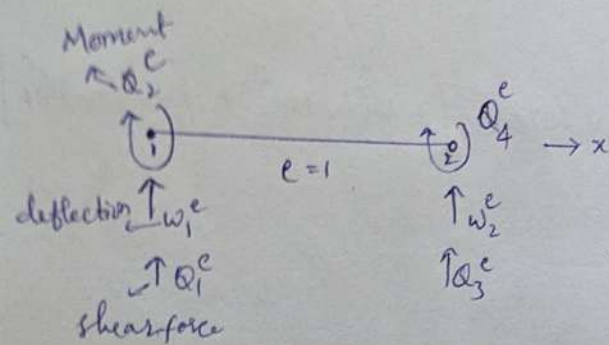 Moment
Q₂ᵉ
1
e=1
2
Q₄ᵉ
→ x
deflection
w₁ᵉ
w₂ᵉ
Q₁ᵉ
Q₃ᵉ
shear force